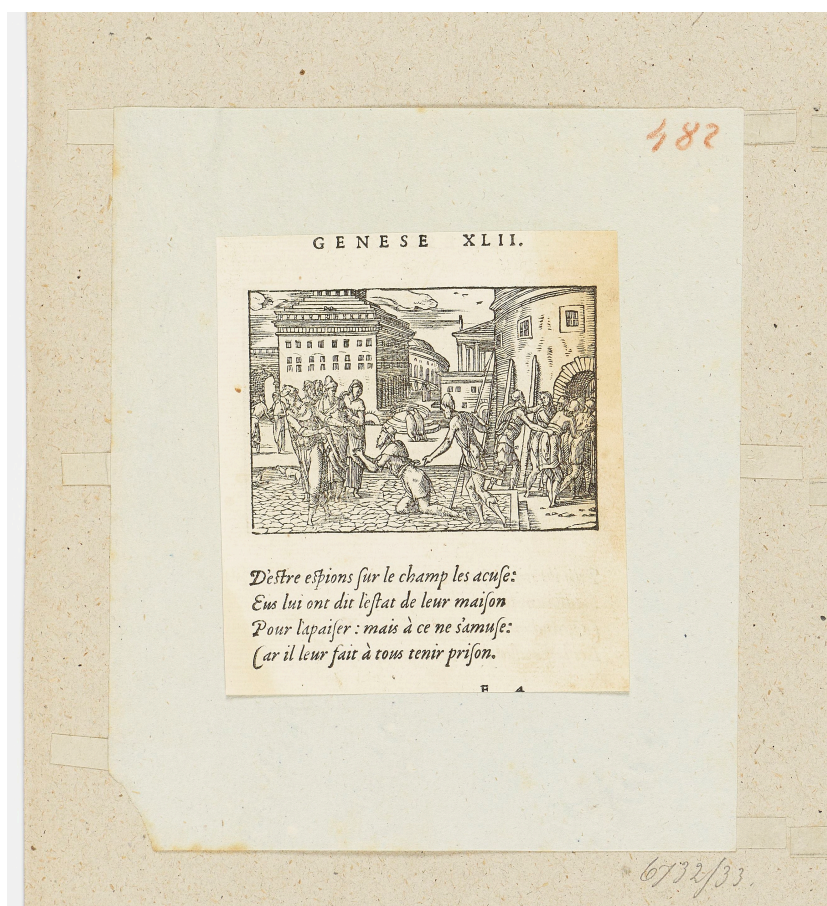 482
GENESE XLII.
D'estre espions sur le champ les acuse:
Eus lui ont dit l'estat de leur maison
Pour l'apaiser : mais à ce ne s'amuse:
Car il leur fait à tous tenir prison.
E 4
6732/33.